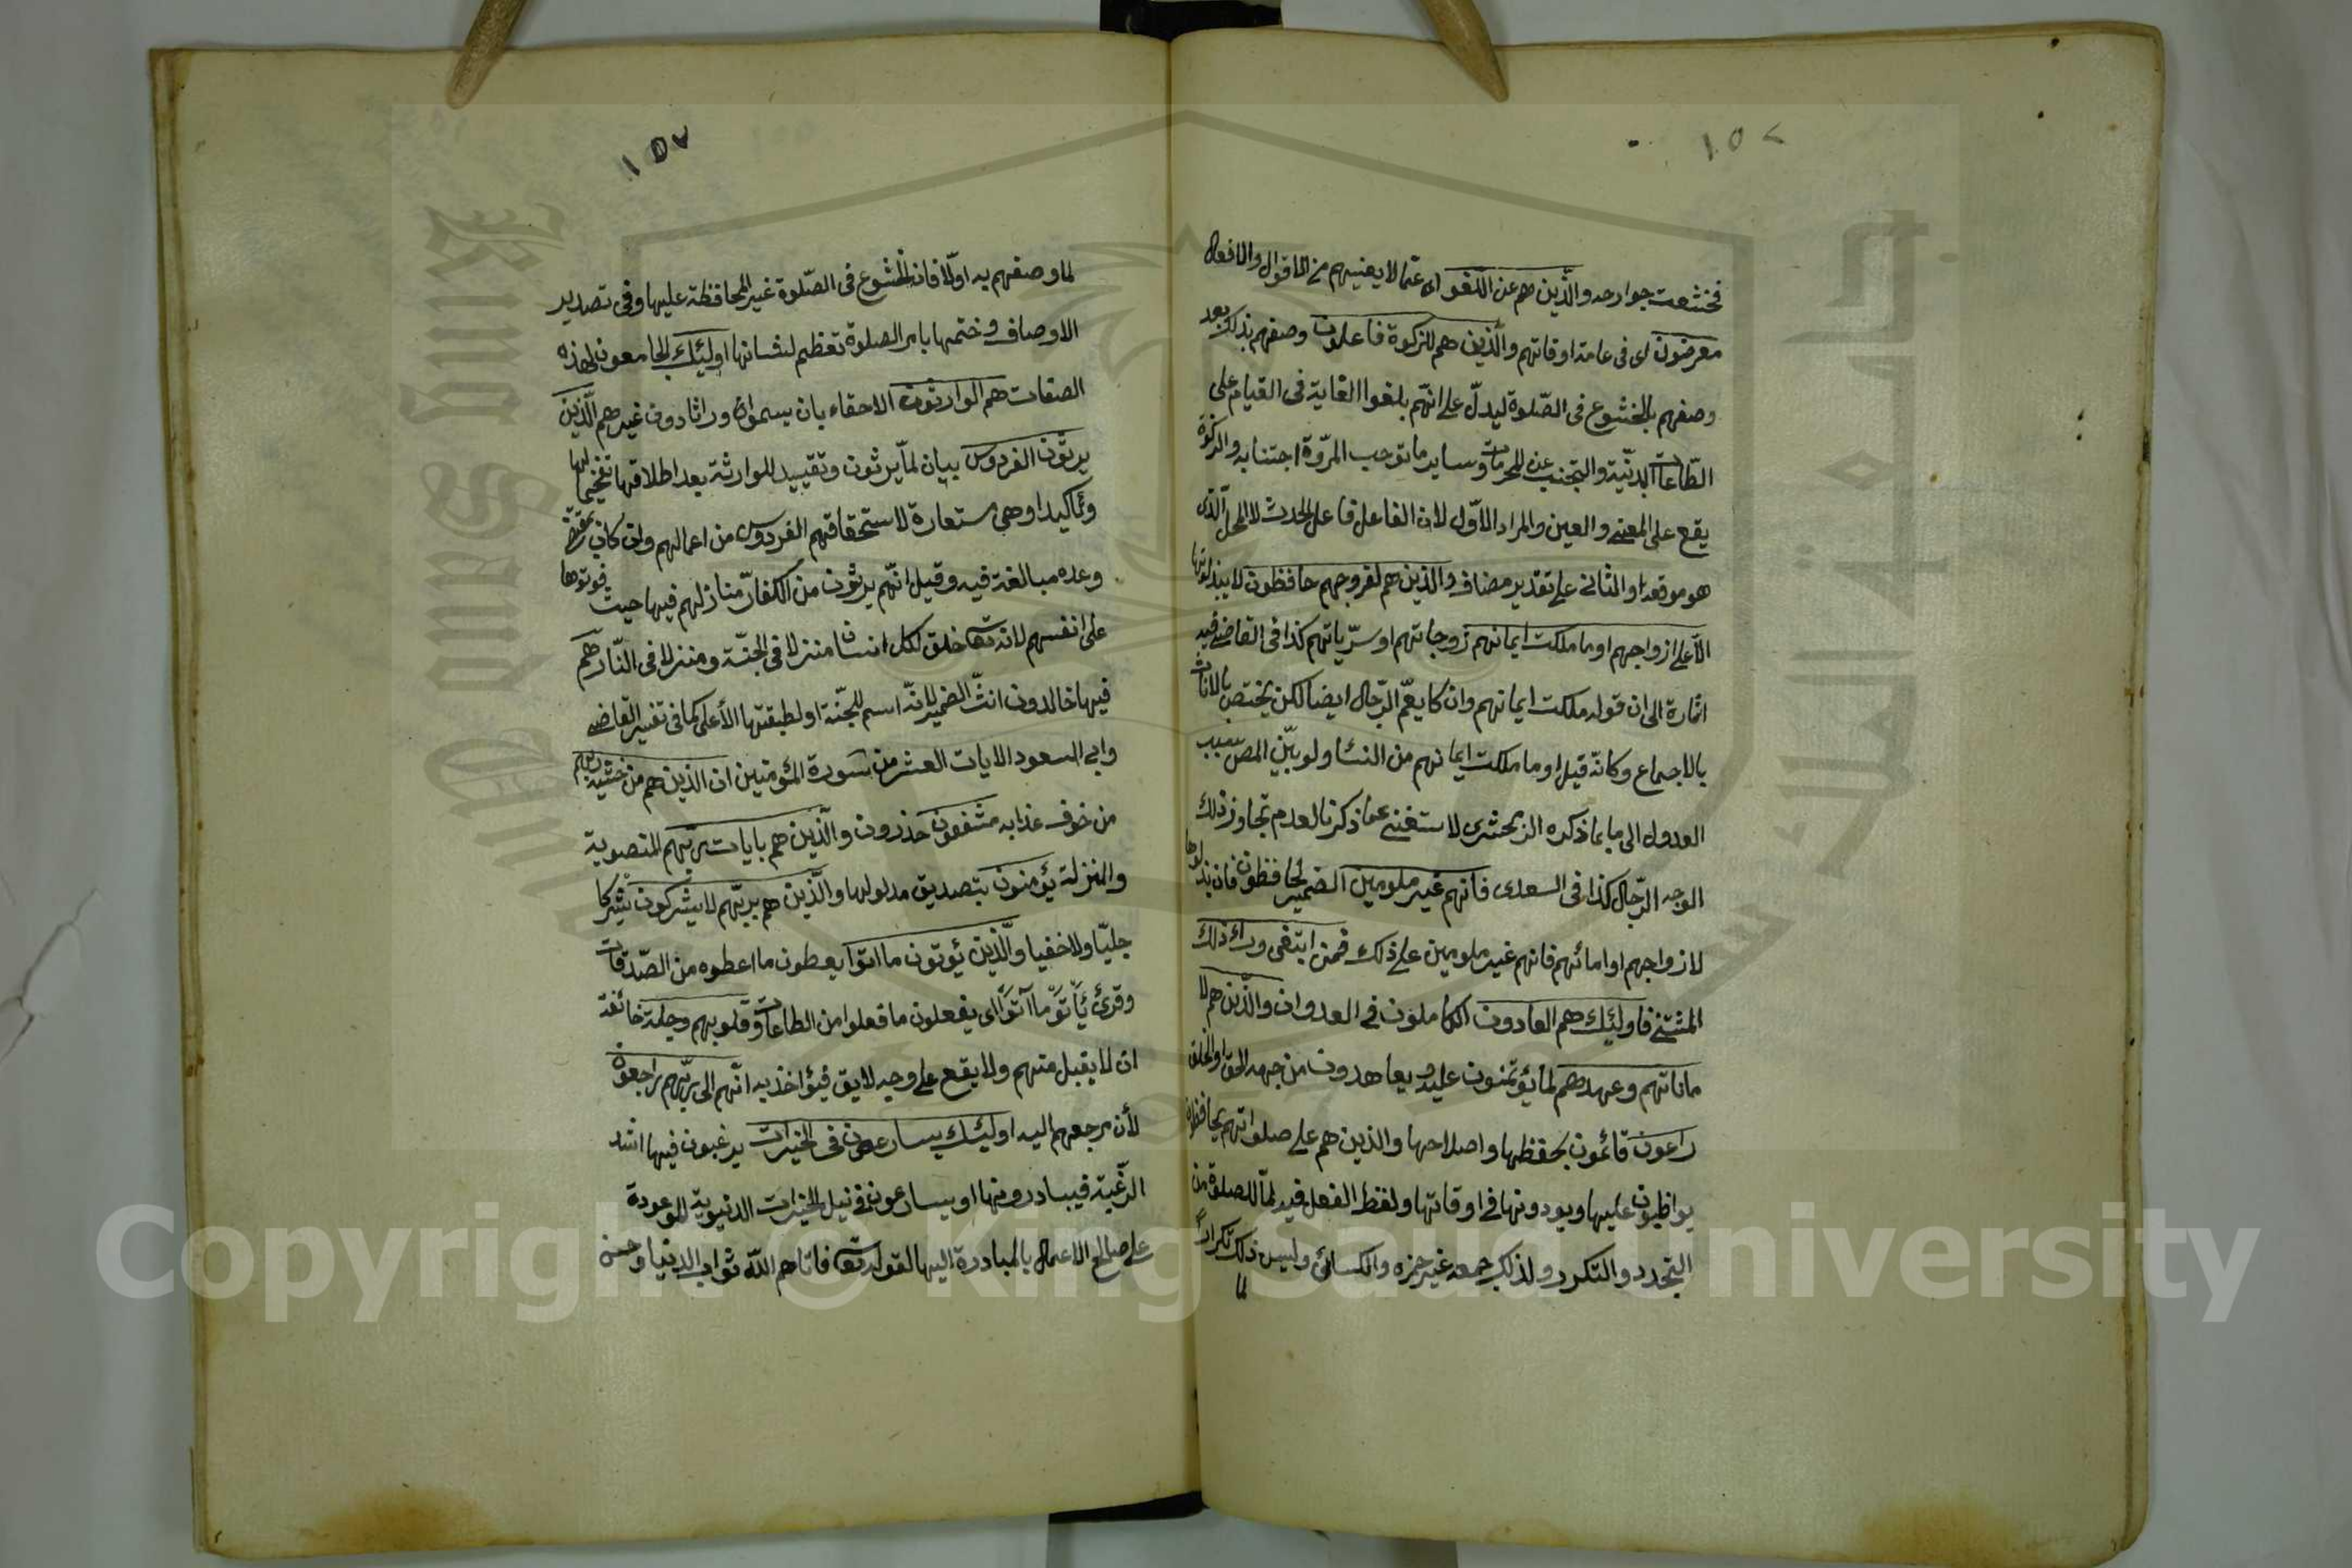 ١٥٧
فخشعت جوارحه والذين هم عن اللغو اى عمّا لا يعنيهم من الاقوال والافعال
معرضون اى فى عامة اوقاتهم والذين هم للزكوة فاعلون وصفهم بذلك بعد
وصفهم بالخشوع فى الصّلوة ليدلّ على انّهم بلغوا الغاية فى القيام على
الطّاعات البدنيّة والتجنب عن المحرمات وساير ما توجب المروّة اجتنابه والزكوة
يقع على المعنى والعين والمراد الاوّل لان الفاعل فاعل الحدث لا المحل الّذى
هو موقعه او الثانى على تقدير مضاف والذين هم لفروجهم حافظون لا يبذلونها
الّا على ازواجهم او ما ملكت ايمانهم زوجاتهم او سرّياتهم كذا فى القاضى فيه
اشارة الى ان قوله ملكت ايمانهم وان كا يعمّ الرّجال ايضا لكن يختص بالاناث
بالاجماع وكانّه قيل او ما ملكت ايمانهم من النسا ولو بيّن المص سبب
العدول الى ما بما ذكره الزمحشرى لاستغنى عما ذكرنا لعدم تجاوز ذلك
الوجه الرّجال كذا فى السعدى فانهم غير ملومين الضمير لحافظون فان بذلوها
لازواجهم او امائهم فانهم غير ملومين على ذلك فمن ابتغى وراء ذلك
المستثنى فاولئك هم العادون الكاملون فى العدوان والّذين هم لا
ماناتهم وعهدهم لما يؤتمنون عليه ويعاهدون من جهه الحق او الخلق
راعون قائمون بحفظها واصلاحها والذين هم على صلواتهم يحافظون
يواظبون عليها ويودونها فى اوقاتها ولفظ الفعل فيه لما للصلوة من
التجدد والتكرر ولذلك جمعه غير حمزه والكسائى وليس ذلك تكراراً
لما
١٥٧
لما وصفهم به اولّا فان الخشوع فى الصّلوة غير المحافظة عليها وفى تصدير
الاوصاف وختمها بامر الصلوة تعظيم لشانها اولئك الجامعون لهذه
الصفات هم الوارثون الاحقاء بان يسموا وراثا دون غيرهم الّذين
يرثون الفردوس بيان لما يرثون وتقييد للوارثة بعد اطلاقها تفخيما لها
وتاكيدا وهى مستعارة لاستحقاقهم الفردوس من اعمالهم وان كان بمقتضى
وعده مبالغة فيه وقيل انّهم يرثون من الكفّار منازلهم فيها حيث فوتوها
على انفسهم لانه تعا خلق لكل انسان منزلا فى الجنّة ومنزلا فى النّار هم
فيها خالدون انّث الضمير لانّه اسم للجنّة او لطبقتها الأعلى كما فى تفسير القاضى
وابى السعود الايات العشر من سورة المؤمنين ان الذين هم من خشية ربهم
من خوف عذابه مشفقون حذرون والّذين هم بايات ربّهم المنصوبة
والمنزلة يؤمنون بتصديق مدلولها والّذين هم بربّهم لا يشركون شركا
جليّا ولا خفيا والّذين يؤتون ما اتوا يعطون ما اعطوه من الصّدقات
وقرئ يأتون ما آتوا اى يفعلون ما فعلوا من الطاعات وقلوبهم وجلة خائفة
ان لا يقبل منهم ولا يقع على وجه لايق فيؤاخذ به انّهم الى ربّهم راجعون
لأن مرجعهم اليه اولئك يسارعون فى الخيرات يرغبون فيها اشد
الرّغبة فيبادرونها او يسارعون فى نيل الخيرات الدنيوية الموعودة
على صالح الاعمال بالمبادرة اليها لقوله تعا فاتاهم اللّه ثواب الدنيا وحسن
Copyright © King Saud University